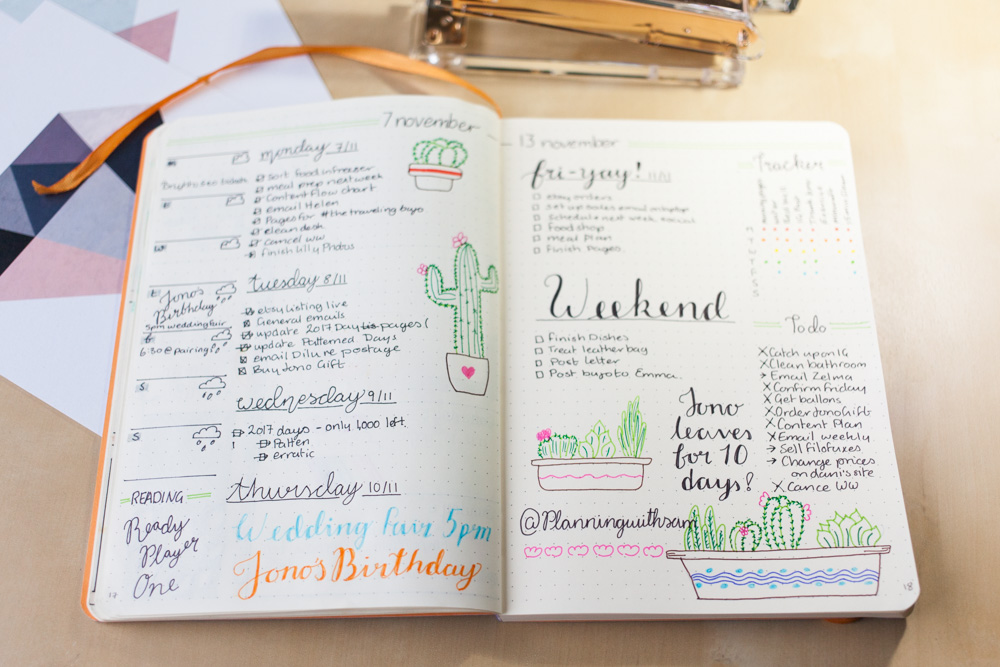 7 november
monday 7/11
sort food in freezer
meal prep next week
Content flow chart
email Helen
Pages for #thetravelingbujo
clean desk
Cancel WW
finish Lily Photos
T
W
T
Jono's
Birthday
5pm wedding fair
6:30 @ pairing
S
S
tuesday 8/11
etsy listing live
General emails
update 2017 Day pages (
update Patterned Days
email Dilure postage
Buy Jono Gift
wednesday 9/11
2017 days - only 1,000 left.
Patten
erratic
READING
Ready
Player
One
thursday 10/11
Wedding Fair 5pm
Jono's Birthday
13 november
fri-yay! 11/11
ebay orders
Schedule next week email
food shop
meal Plan
Finish Pages.
Weekend
Finish Dishes
Treat leather bag
Post letter
Post bujo to Emma.
Jono
leaves
for 10
days!
@Planningwithsam
Tracker
M
T
W
T
F
S
S
Todo
Catch up on IG
Clean bathroom
Email Zelma
Confirm friday
Get ballons
Order Jono Gift
Content Plan
Email weekly
Sell Filofaxes
Change prices
on dani's site
Cance WW
18